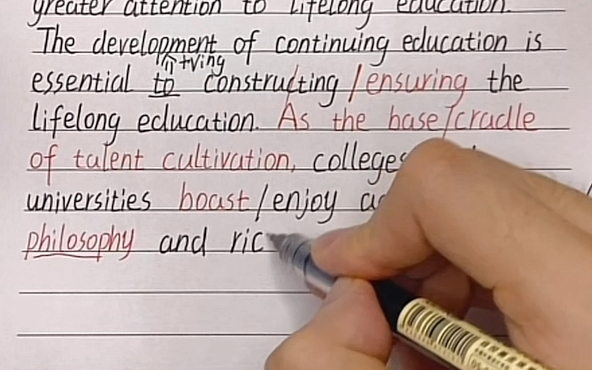 greater attention to lifelong education.
The development of continuing education is
+ving
essential to constructing / ensuring the
lifelong education. As the base/cradle
of talent cultivation, colleges
universities boast/enjoy
philosophy and ric